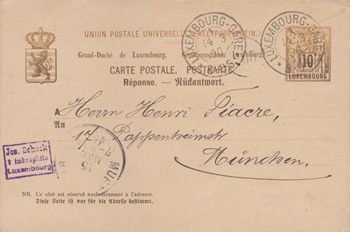 UNION POSTALE UNIVERSELLE
Grand-Duché de Luxembourg.
LUXEMBOURG-GARE
LUXEMBOURG-GARE
10
LUXEMBOURG
CARTE POSTALE. POSTKARTE.
Réponse. — Rückantwort.
A
An
Herrn Henri Fiacre,
17, Pappenheimstr.
München.
Jos. Schock
timbrophile
Luxembourg
NB. Ce côté est réservé exclusivement à l'adresse.
Diese Seite ist nur für die Adresse bestimmt.